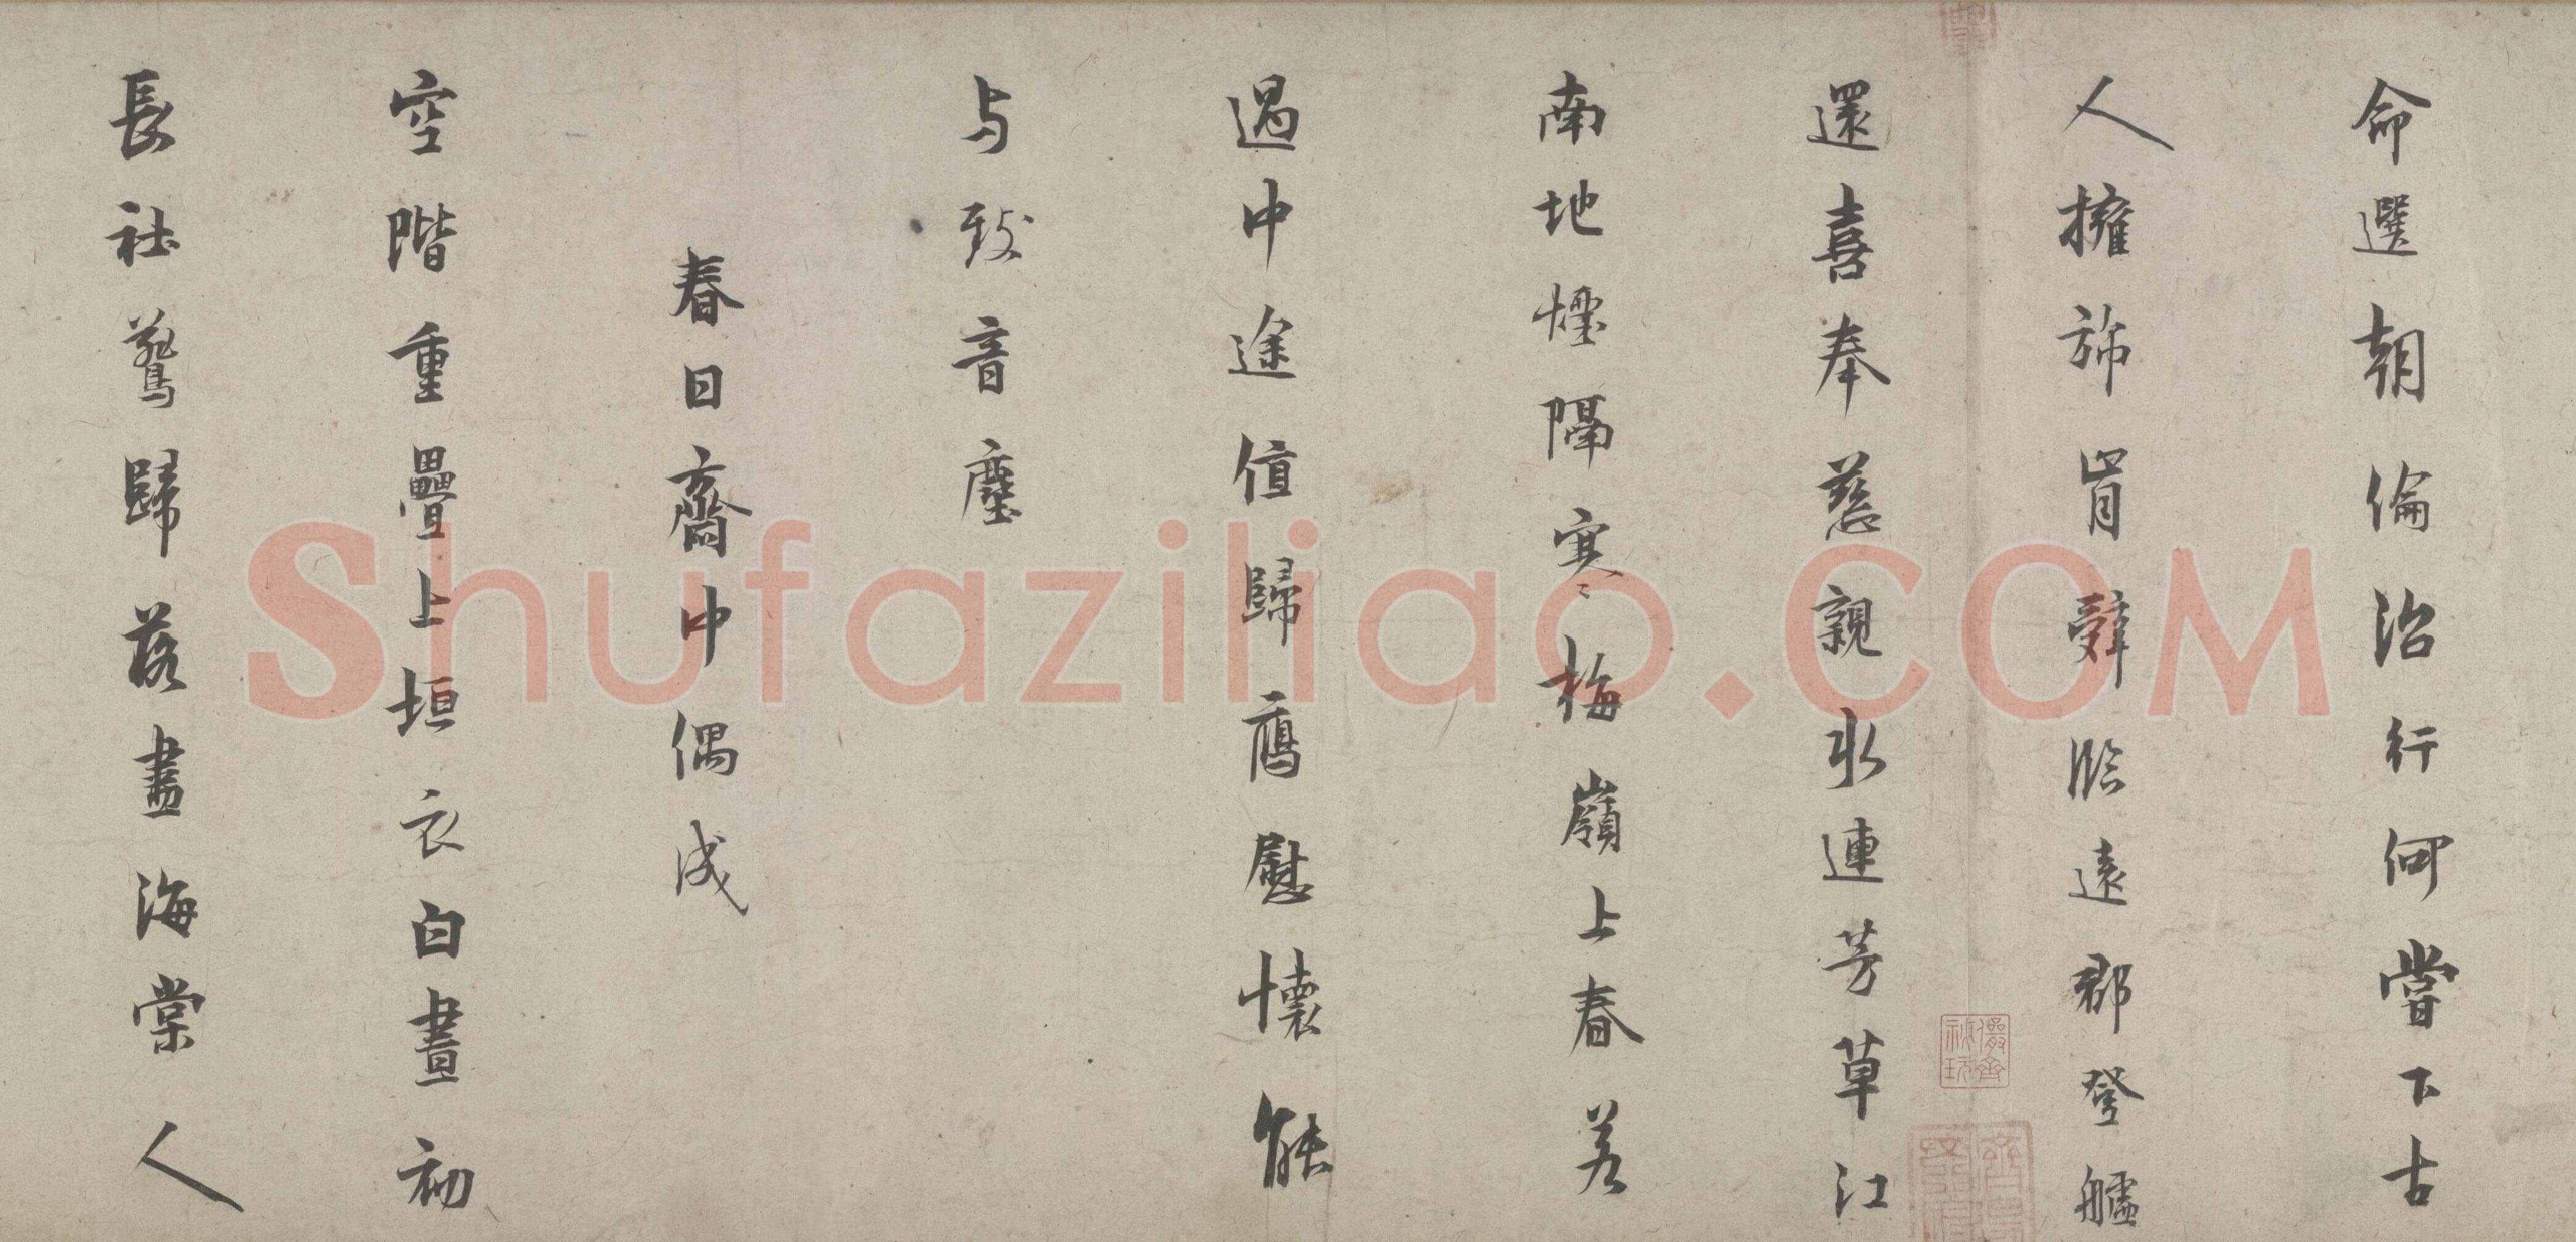 命選朝倫治行何嘗下古
人擁旆肯辭臨遠郡登艫
還喜奉慈親水連芳草江
南地煙隔寒梅嶺上春若
過中途值歸鴈慰懷能
与致音塵
春日齋中偶成
空階重疊上垣衣白晝初
長社鷰歸落盡海棠人
儼齋秘玩
Shufaziliao.COM